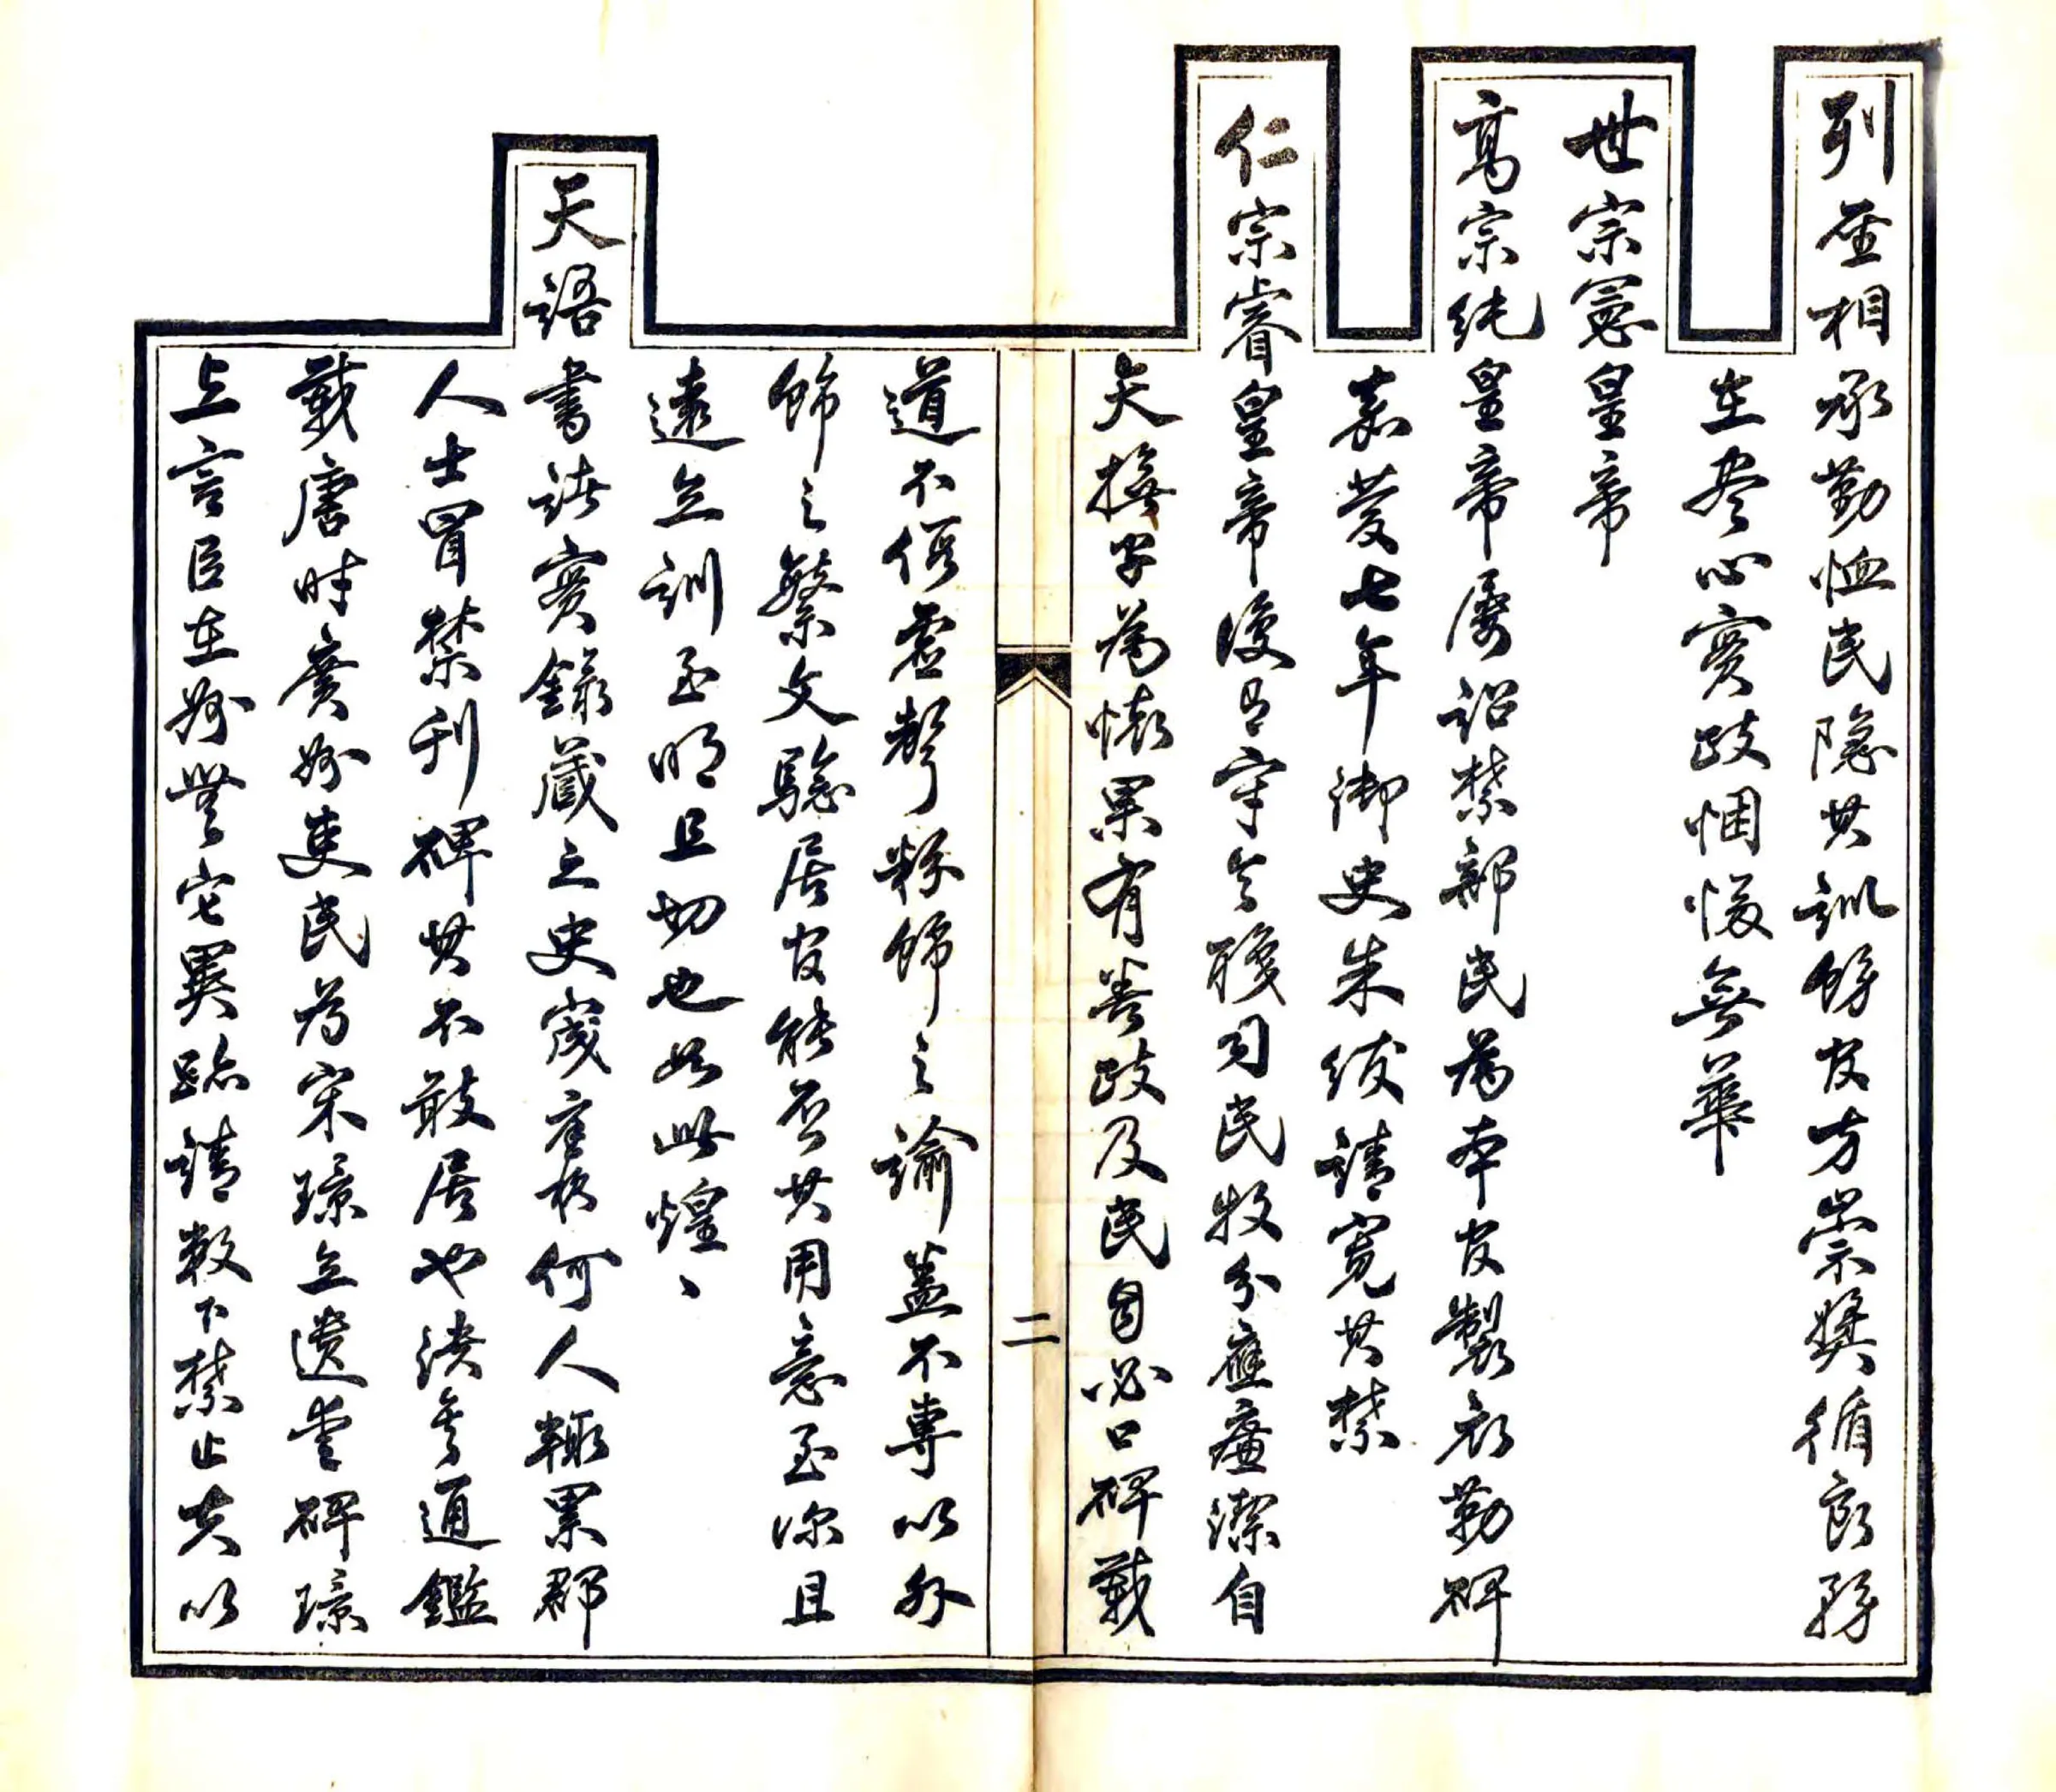 列聖相承勤恤民隱其訓飭官方崇獎循良務
在盡心實政悃愊無華
世宗憲皇帝
高宗純皇帝屢詔禁部民為本官製衣勒碑
嘉慶七年御史朱紱請寬其禁
仁宗睿皇帝復有守令職司民牧分應廉潔自
矢撫字為懷果有善政及民自必口碑載
二
道不假虛聲粉飾之諭蓋不專以外
飾之繁文驗居官能否其用意至深且
遠立訓至明且切也如此煌〻
天語書諸實錄藏之史宬何人輒累郡
人士冒禁刊碑其不敢居也決矣通鑑
載唐時廣州吏民為宋璟立遺愛碑璟
上言臣在州無它異跡請敕下禁止夫以